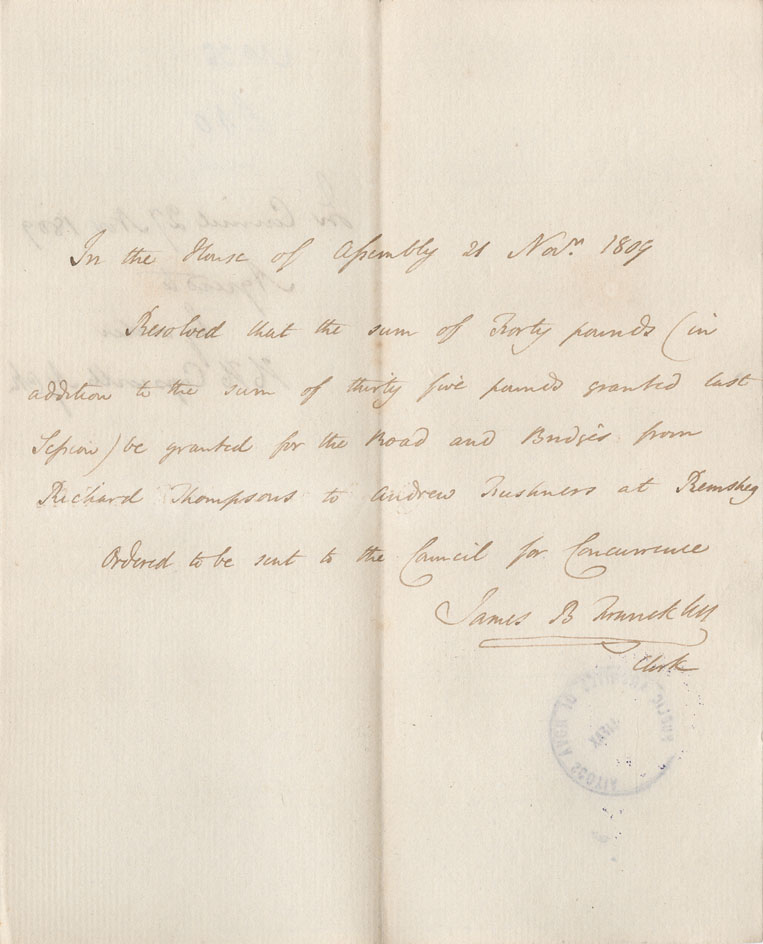 In the House of Assembly 21 Novr. 1809
Resolved that the sum of Forty pounds (in
addition to the sum of thirty five pounds granted last
Session) be granted for the Road and Bridges from
Richard Thompsons to Andrew Fushners at Remsheg
Ordered to be sent to the Council for Concurrence
James B Francklin
Clerk
PUBLIC ARCHIVES OF NOVA SCOTIA
HALIFAX
In Council 27 Nov 1809
Agreed to